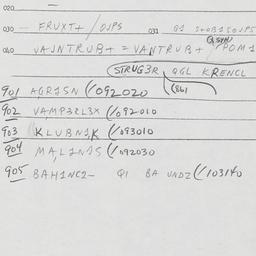 020
030 — FRUXT+ / OJPS 031
040 VAJNTRUB+ = VANTRUB+ /POM1
STRUG3R QGL KRENCL
901 AGR1SN (/092020
902 VAMP3RL3X (/092010
903 KLUBN1K (/093010
904 MAL1N1S (/092030
905 BAH1NC2— Q1 BA UNDZ (/103140